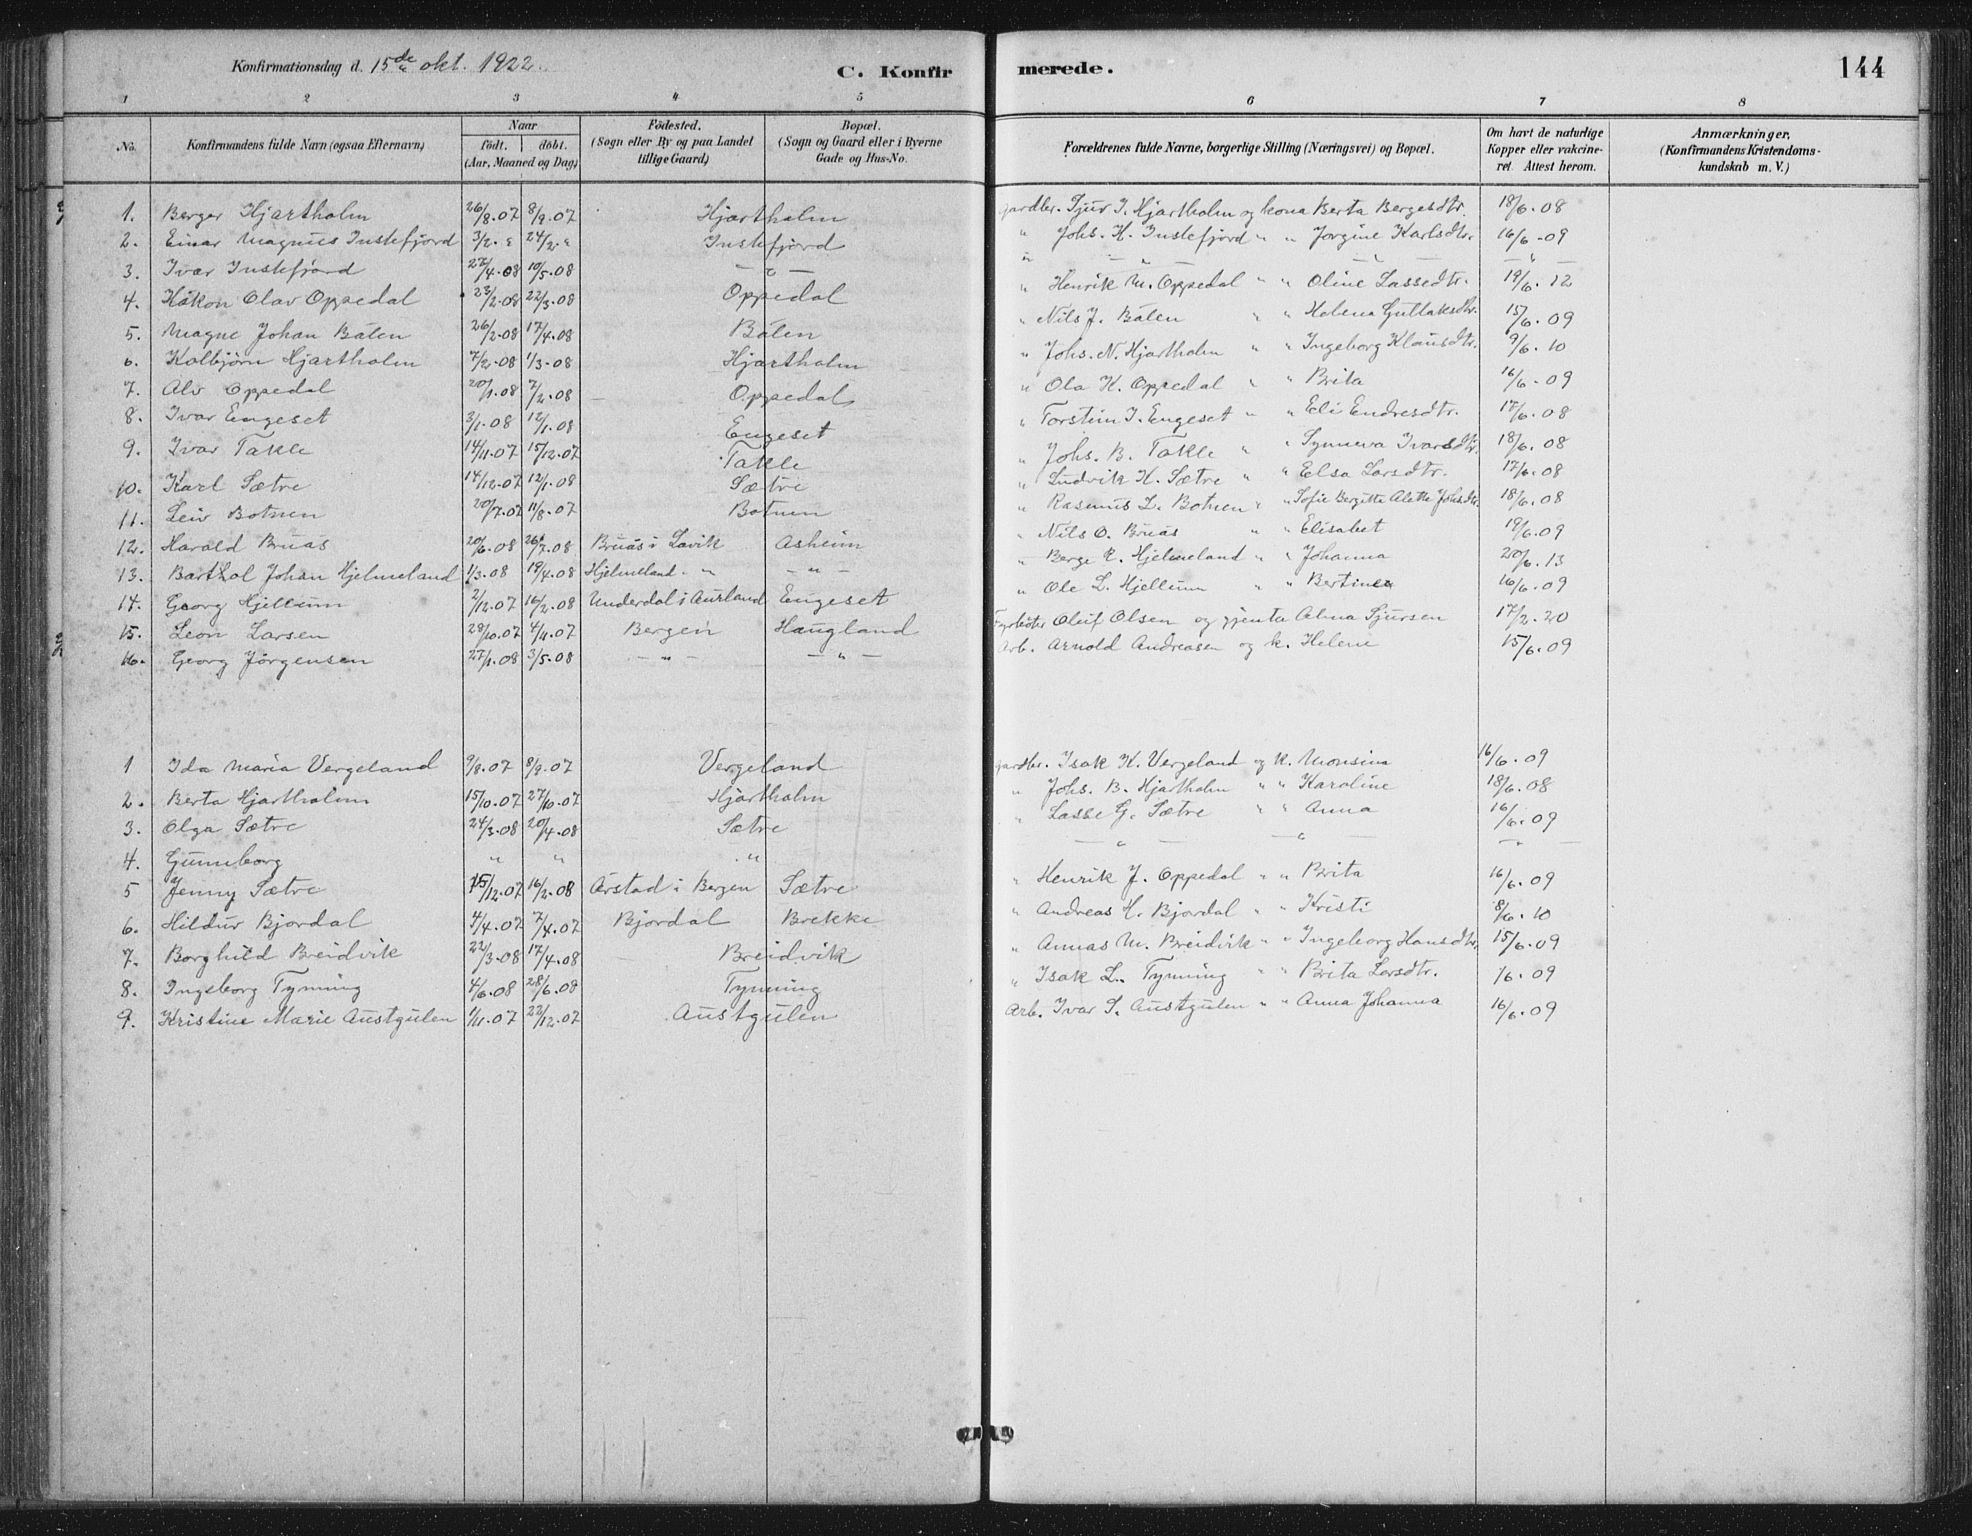 Konfirmationsdag d. 15de okt. 1922. C. Konfir merede. 144
1 2 3 4 5 6 7 8
No. Konfirmandens fulde Navn (ogsaa Efternavn) Naar födt. döbt. (Aar, Maaned og Dag) Födested. (Sogn eller By og paa Landet tillige Gaard) Bopæl. (Sogn og Gaard eller i Byerne Gade og Hus-No. Forældrenes fulde Navne, borgerlige Stilling (Næringsvei) og Bopæl. Om havt de naturlige Kopper eller vakcineret. Attest herom. Anmærkninger, (Konfirmandens Kristendomskundskab m. V.)
1. Berger Hjartholm 26/8.07 8/9.07 Hjartholm gardbr. Sjur I. Hjartholm og kona Berta Bergesdtr. 18/6.08
2. Einar Magnus Instefjord 3/2. " 24/2. " Instefjord " Johs. H. Instefjord " " Jorgine Karlsdtr. 16/6.09
3. Ivar Instefjord 27/4.08 10/5.08 — " — " — " — — " — — " —
4. Håkon Olav Oppedal 23/2.08 22/3.08 Oppedal " Henrik M. Oppedal " " Oline Lassedtr. 19/6.12
5. Magne Johan Bålen 26/2.08 17/4.08 Bålen " Nils J. Bålen " " Helena Guttaksdtr. 15/6.09
6. Kolbjörn Hjartholm 7/2.08 1/3.08 Hjartholm " Johs. N. Hjartholm " " Ingeborg Klausdtr. 9/6.10
7. Alv Oppedal 20/1.08 7/2.08 Oppedal " Ola K. Oppedal " " Brita 16/6.09
8. Ivar Engeset 3/1.08 12/1.08 Engeset " Torstein I. Engeset " " Eli Endresdtr. 17/6.08
9. Ivar Takle 14/11.07 15/12.07 Takle " Johs. B. Takle " " Synneva Ivarsdtr. 18/6.08
10. Karl Sætre 14/12.07 12/1.08 Sætre " Ludvik K. Sætre " " Elsa Larsdtr. 17/6.08
11. Leiv Botnen 20/7.07 11/8.07 Botnen " Rasmus L. Botnen " " Sofie Bergitte Alette Johsdtr. 18/6.08
12. Harald Bruås 20/6.08 26/7.08 Bruås i Lavik Asheim " Nils O. Bruås " " Elisabet 19/6.09
13. Barthol Johan Hjelmeland 1/3.08 19/4.08 Hjelmeland. " — " — " Berge R. Hjelmeland " " Johanna 20/6.13
14. Georg Hjellum 2/12.07 16/2.08 Underdal i Aurland Engeset " Ole L. Hjellum " " Bertine 16/6.09
15. Leon Larsen 28/10.07 4/11.07 Bergen Haugland Fyrböter Oluf Olsen og gjenta Alma Sjursen 17/2.20
16. Georg Jörgensen 27/1.08 3/5.08 — " — — " — Arb. Arnold Andreasen og k. Helene 15/6.09
1 Ida Maria Vergeland 9/8.07 8/9.07 Vergeland gardbr. Isak K. Vergeland og k. Monsina 16/6.09
2. Berta Hjartholm 15/10.07 27/10.07 Hjartholm " Johs. B. Hjartholm " " Karoline 18/6.08
3. Olga Sætre 24/3.08 20/4.08 Sætre " Lasse G. Sætre " " Anna 16/6.09
4. Gunneborg " " " — " — — " — — " —
5 Jenny Sætre 15/12.07 16/2.08 Årstad i Bergen Sætre " Henrik J. Oppedal " " Brita 16/6.09
6. Hildur Bjordal 4/4.07 7/4.07 Bjordal Brekke " Andreas H. Bjordal " " Kristi 8/6.10
7. Borghild Breidvik 22/3.08 17/4.08 Breidvik " Annas M. Breidvik " " Ingeborg Hansdtr. 15/6.09
8. Ingeborg Tynning 4/6.08 28/6.08 Tynning " Isak L. Tynning " " Brita Larsdtr. /6.09
9. Kristine Marie Austgulen 1/11.07 22/12.07 Austgulen Arb. Ivar S. Austgulen " " Anna Johanna 16/6.09